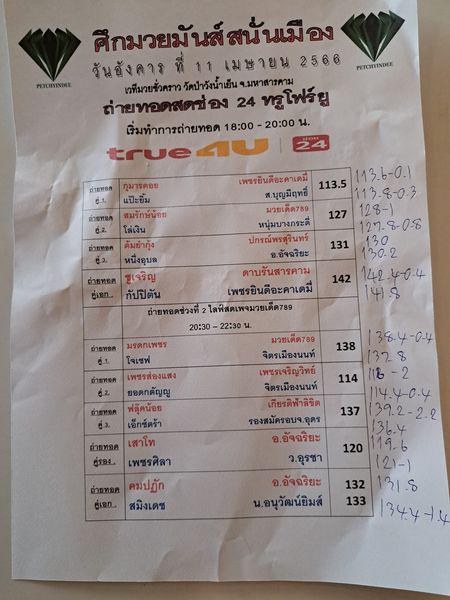 ศึกมวยมันส์สนั่นเมือง
วันอังคาร ที่ 11 เมษายน 2566
PETCHYINDEE
PETCHYINDEE
เวทีมวยชั่วคราว วัดป่าวังน้ำเย็น จ.มหาสารคาม
ถ่ายทอดสดช่อง 24 ทรูโฟร์ยู
เริ่มทำการถ่ายทอด 18:00 - 20:00 น.
true4U ช่อง 24
ถ่ายทอด กุมารดอย เพชรยินดีอะคาเดมี่ 113.5 113.6-0.1
คู่ 1. แป๊ะยิ้ม ส.บุญมีฤทธิ์ 113.8-0.3
ถ่ายทอด สมรักษ์น้อย มวยเด็ด789 127 128-1
คู่ 2. โล่เงิน หนุ่มบางกระดี่ 127.8-0.8
ถ่ายทอด ต้มยำกุ้ง ปกรณ์พรสุรินทร์ 131 130
คู่ 3. หนึ่งอุบล อ.อัจฉริยะ 130.2
ถ่ายทอด ชูเจริญ ดาบรันสารคาม 142 142.4-0.4
คู่เอก. กัปปิตัน เพชรยินดีอะคาเดมี่ 141.8
ถ่ายทอดช่วงที่ 2 ไลฟ์สดเพจมวยเด็ด789
20:30 – 22:30 น.
ถ่ายทอด มรดกเพชร มวยเด็ด789 138 138.4-0.4
คู่ 1. โจเซฟ จิตรเมืองนนท์ 137.8
ถ่ายทอด เพชรส่องแสง เพชรเจริญวิทย์ 114 116-2
คู่ 2. ยอดกตัญญู จิตรเมืองนนท์ 114.4-0.4
ถ่ายทอด ฟลุ๊คน้อย เกียรติฟ้าลิขิต 137 139.2-2.2
คู่ 3. เอ็กซ์ตร้า รองสมัครอบจ.อุดร 136.4
ถ่ายทอด เสาโท อ.อัจฉริยะ 120 119.6
คู่รอง. เพชรศิลา ว.อุรชา 121-1
ถ่ายทอด คมปฏัก อ.อัจฉริยะ 132 131.8
คู่เอก. สมิงเดช น.อนุวัฒน์ยิมส์ 133 134.4-1.4